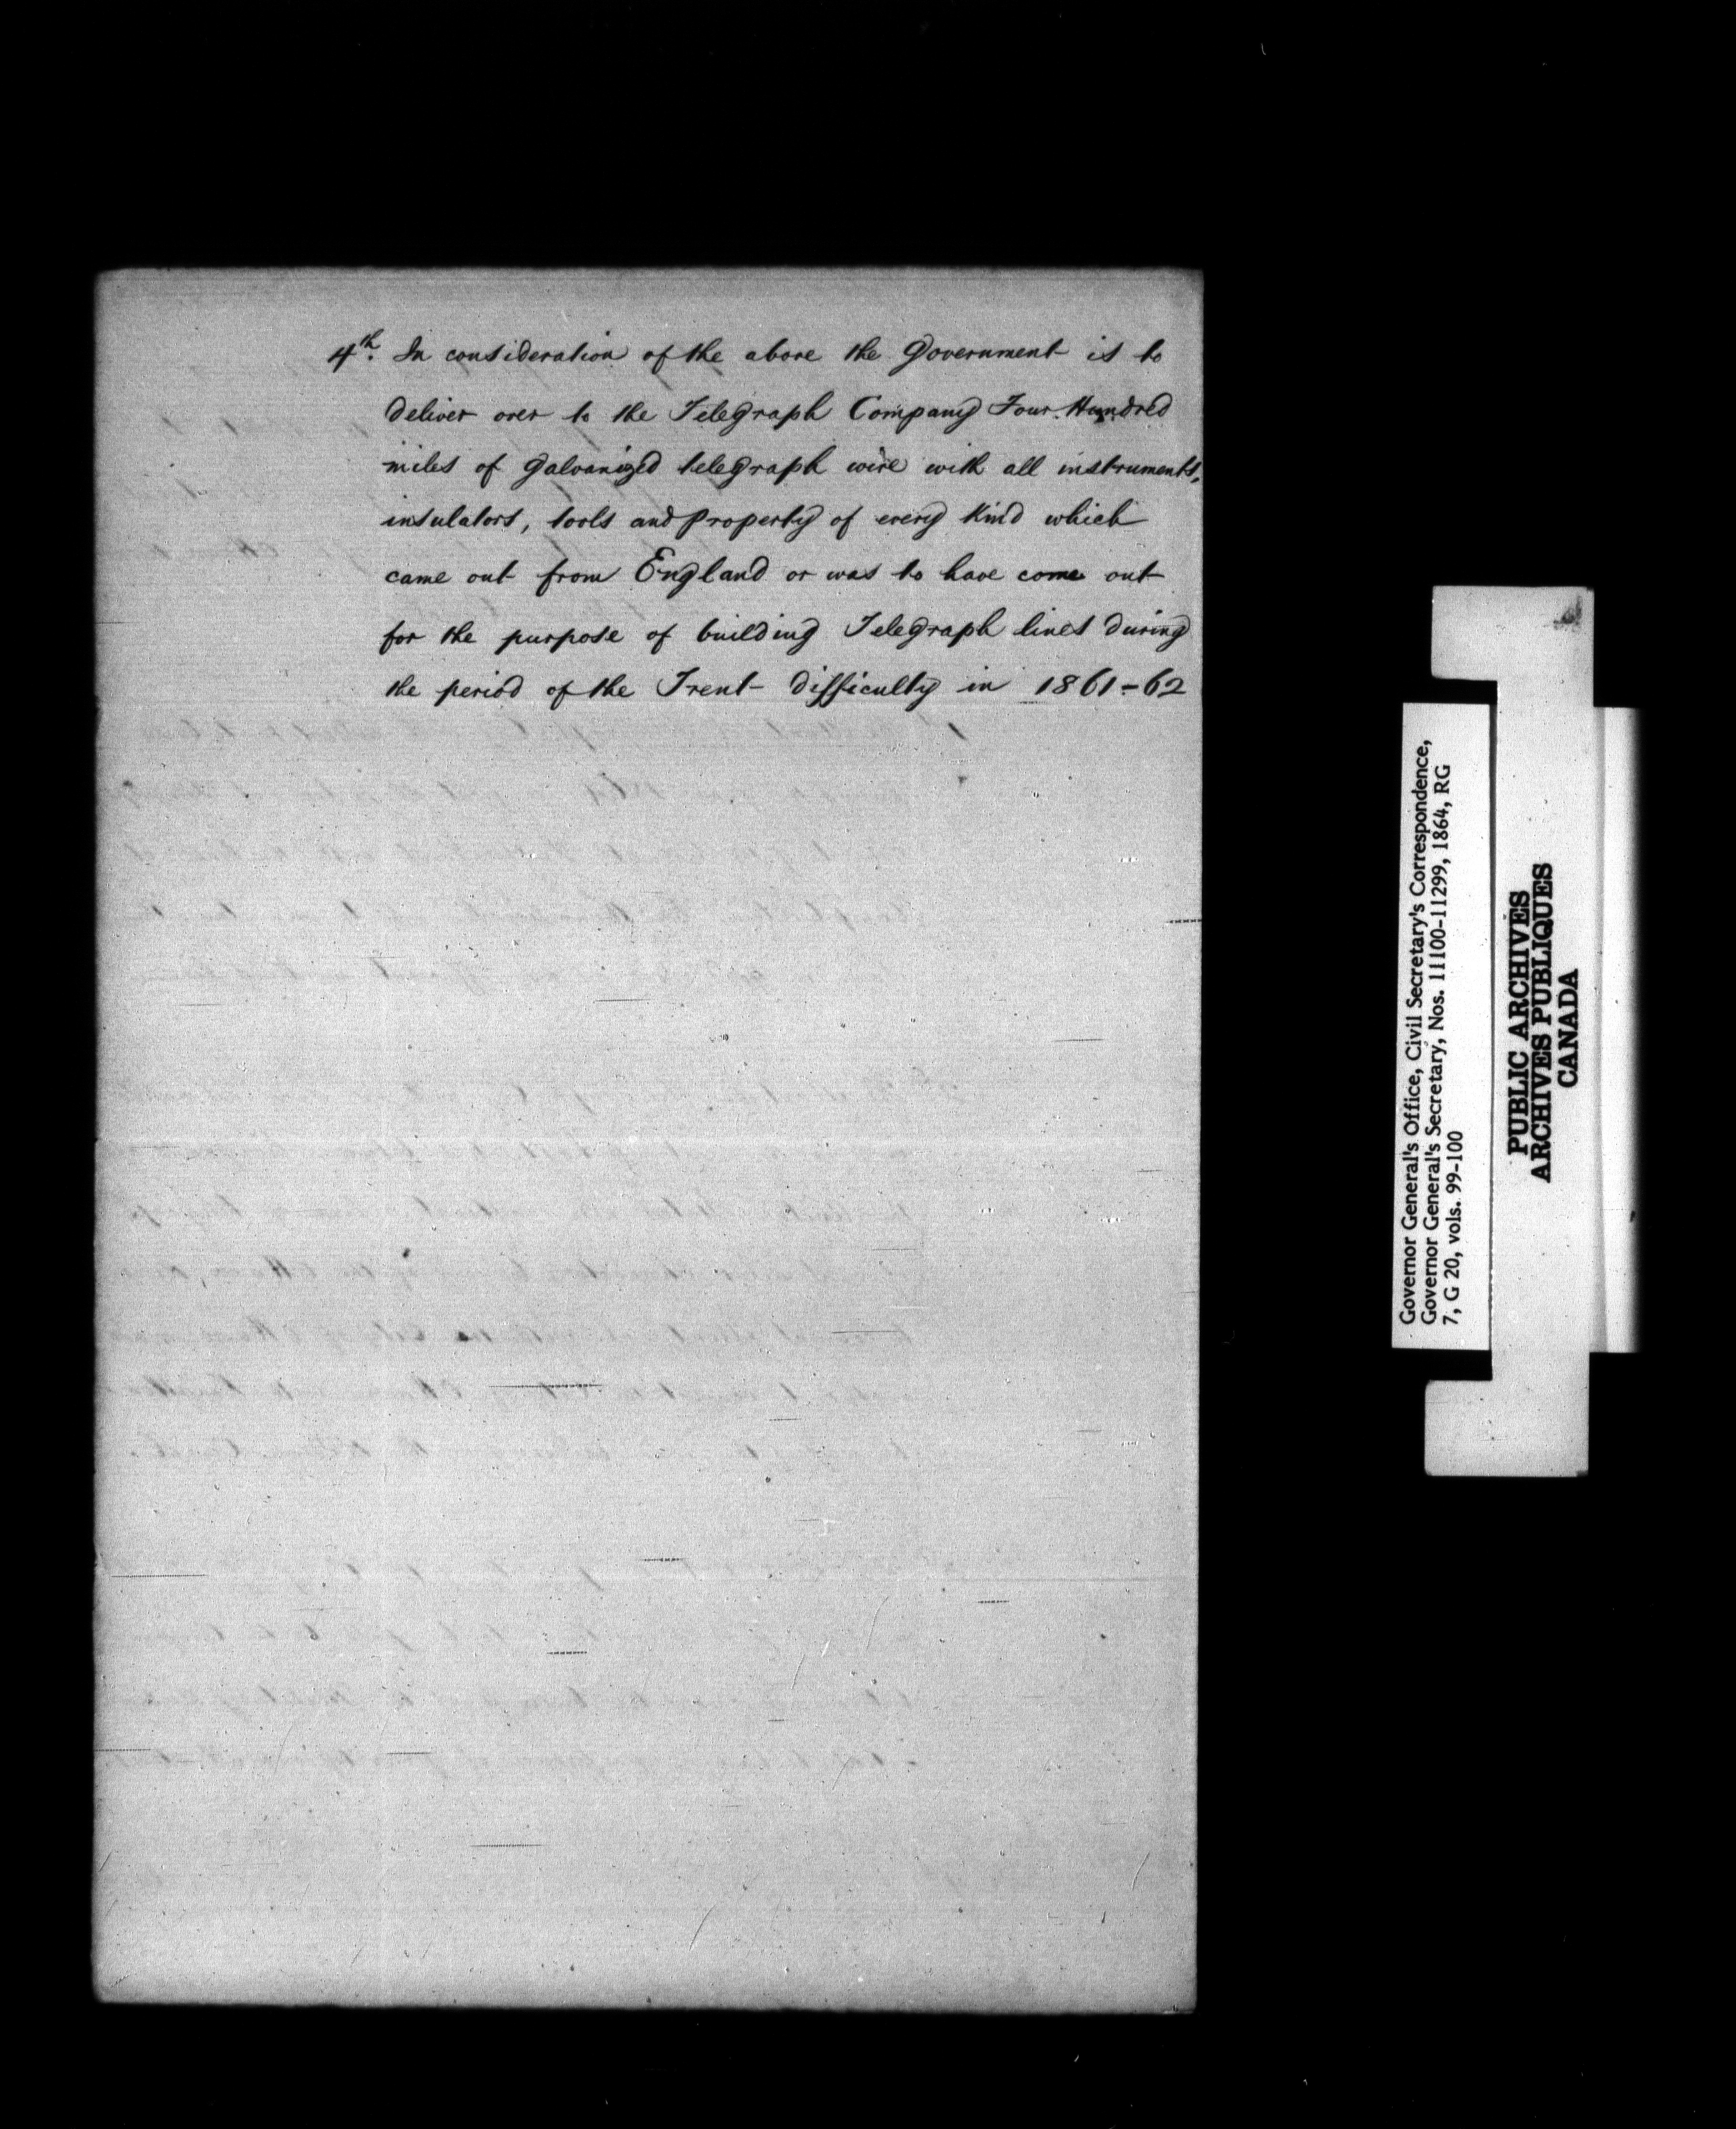 4th. In consideration of the above the Government is to
deliver over to the Telegraph Company Four Hundred
miles of galvanized telegraph wire with all instruments,
insulators, tools and property of every kind which
came out from England or was to have come out
for the purpose of building Telegraph lines during
the period of the Trent difficulty in 1861-62
Governor General's Office, Civil Secretary's Correspondence,
Governor General's Secretary, Nos. 11100-11299, 1864, RG
7, G 20, vols. 99-100
PUBLIC ARCHIVES
ARCHIVES PUBLIQUES
CANADA